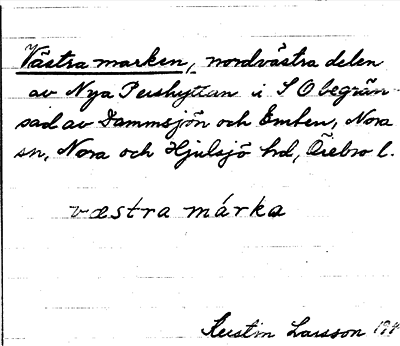 Västra marken, nordvästra delen
av Nya Pershyttan i S O begrän-
sad av Dammsjön och Emten, Nora
sn, Nora och Hjulsjö hd, Örebro l.
væstra márka
Kerstin Larsson